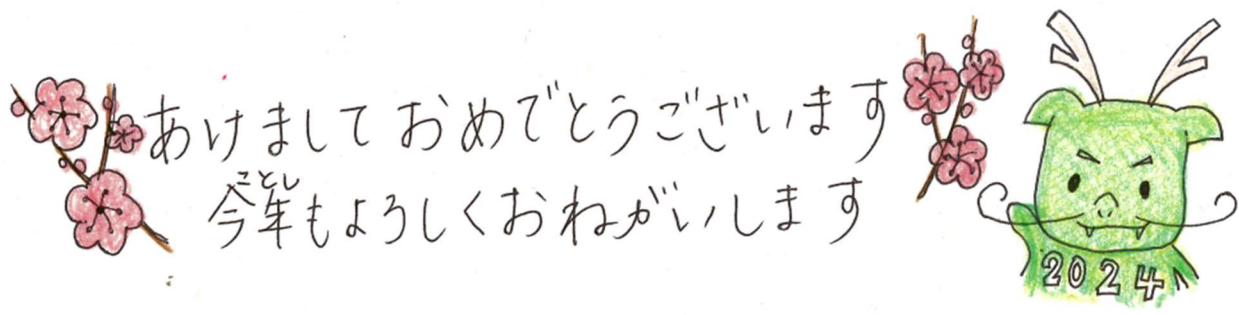 あけましておめでとうございます
ことし
今年もよろしくおねがいします
2024